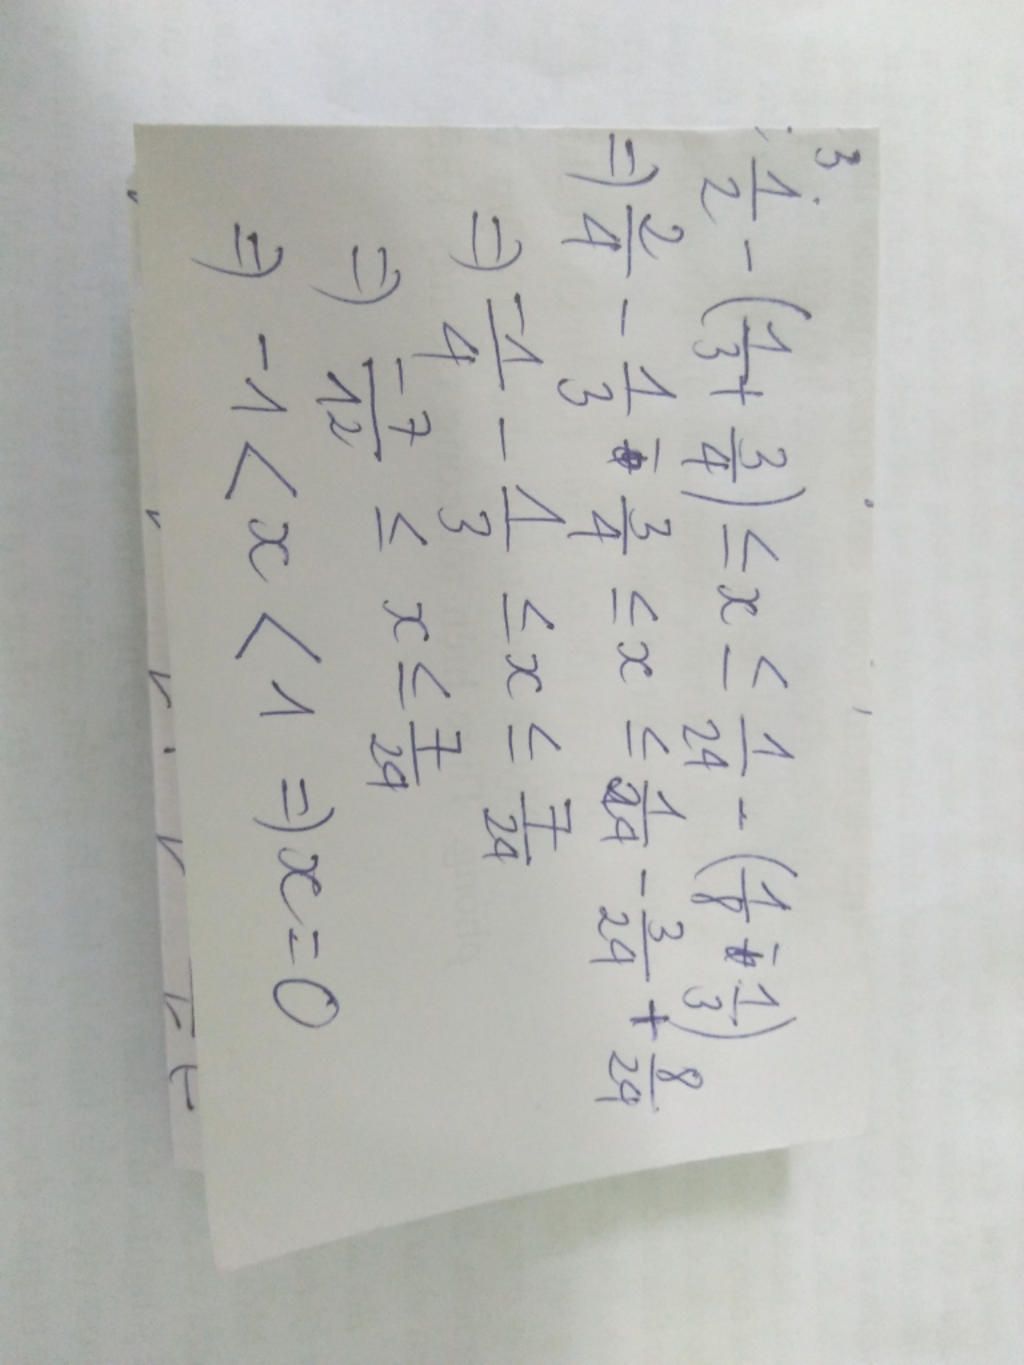 3
1/2 - (1/3 + 3/4) ≤ x ≤ 1/24 - (1/8 - 1/3)
=) 2/4 - 1/3 - 3/4 ≤ x ≤ 1/24 - 3/24 + 8/24
=) -1/4 - 1/3 ≤ x ≤ 7/24
=) -7/12 ≤ x ≤ 7/24
=) -1 < x < 1 =) x = 0